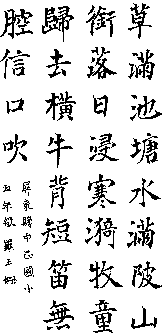 草滿池塘水滿陂山
銜落日浸寒漪牧童
歸去橫牛背短笛無
腔信口吹
屏東縣中正國小
五年級 羅玉